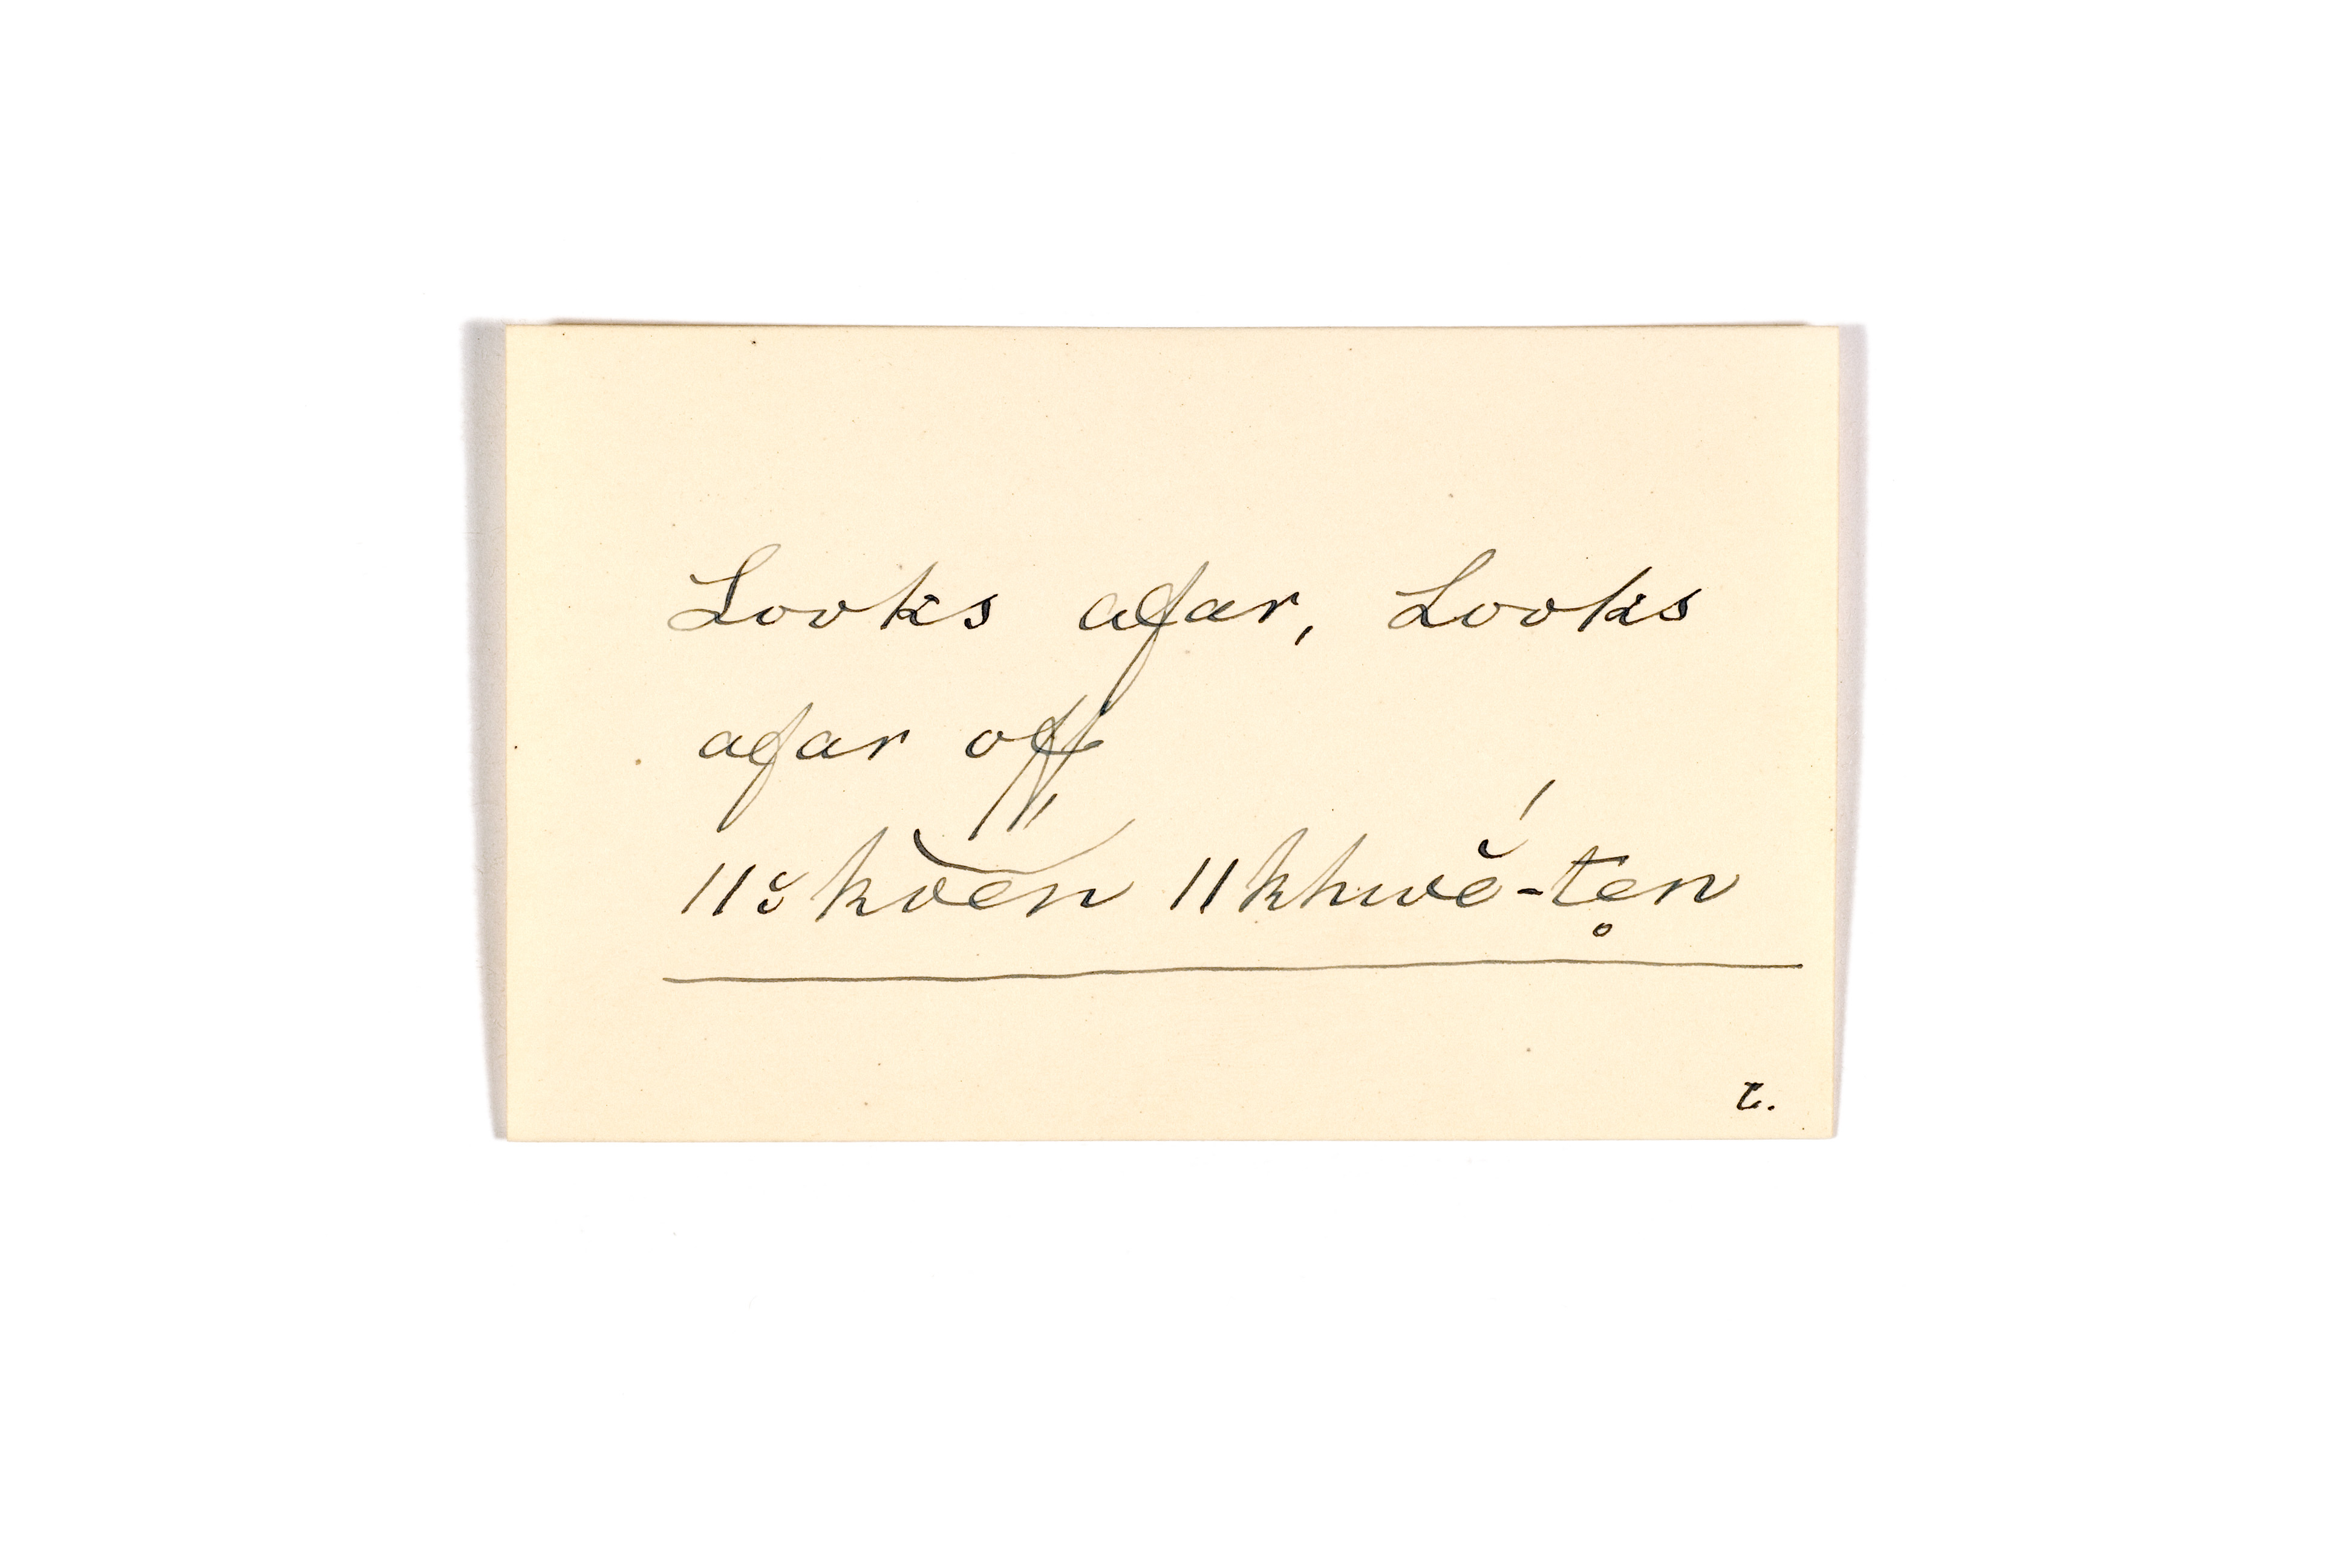 Looks afar, Looks
afar off
ǁ˘kŏ͝en ǁkhwĕ́-te̥n
t.